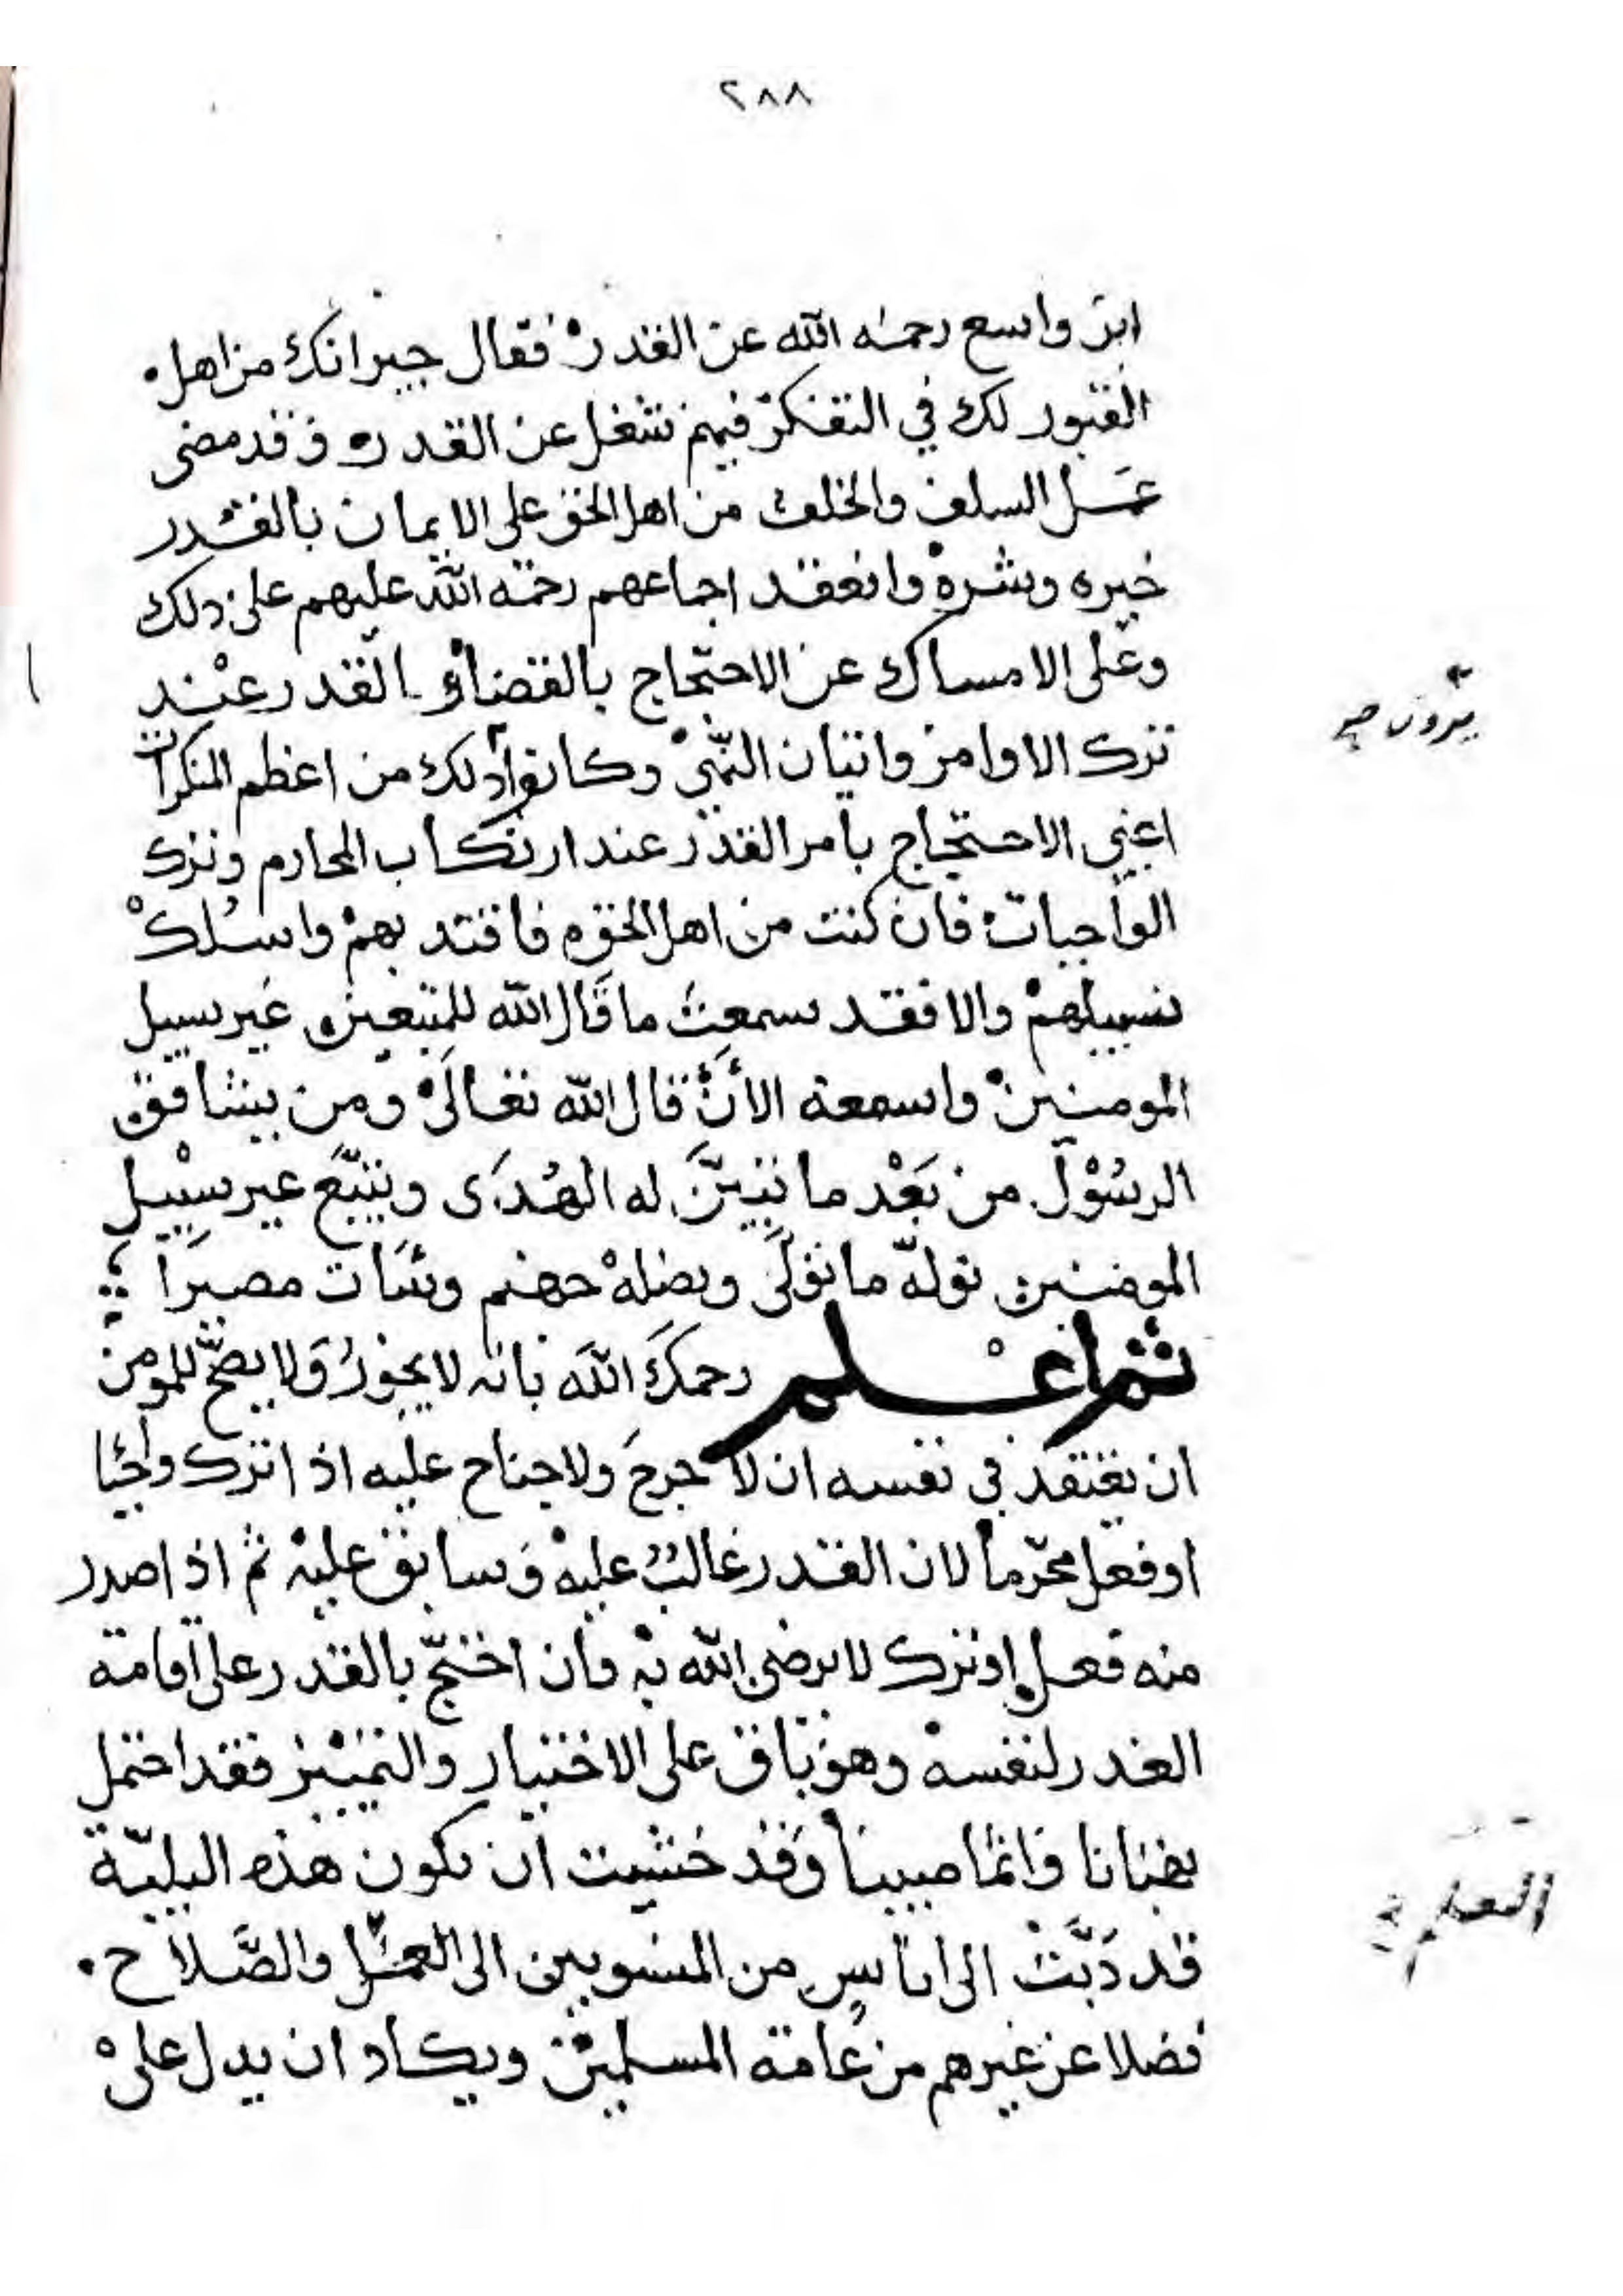 ٢٨٨
ابن واسع رحمه الله عن القدر فقال جيرانك من اهل
القبور لك في التفكر فيهم شغل عن القدر وقد مضى
عمل السلف والخلف من اهل الحق على الايمان بالقدر
خيره وشره وانعقد اجماعهم رحمة الله عليهم على ذلك
وعلى الامساك عن الاحتجاج بالقضاء والقدر عند
يرون صح
ترك الاوامر واتيان النهي وكانوا ذلك من اعظم المنكرات
اعني الاحتجاج بامر القدر عند ارتكاب المحارم وترك
الواجبات فان كنت من اهل الحق فاقتد بهم واسلك
سبيلهم والا فقد سمعت ما قال الله للمتبعين غير سبيل
المومنين واسمعه الأن قال الله تعالى ومن يشاقق
الرسول من بعد ما تبين له الهدى ويتبع غير سبيل
المومنين نوله ما تولى ونصله جهنم وسَات مصيرا
ثم اعلم رحمك الله بانه لا يجوز ولا يصح للمومن
ان يعتقد في نفسه ان لا حرج ولا جناح عليه اذا ترك واجبا
او فعل محرما لان القدر غالب عليه وسابق عليه ثم اذا صدر
منه فعل او ترك لا يرضى الله به فان احتج بالقدر على اقامة
العذر لنفسه وهو باق على الاختيار والتمييز فقد احتمل
بهتانا واثما مبينا وقد خشيت ان تكون هذه البلية
قد دَبَّت الى اناس من المنسوبين الى العمل والصَّلاح
العلم
فضلا عن غيرهم من عامة المسلمين ويكاد ان يدل على